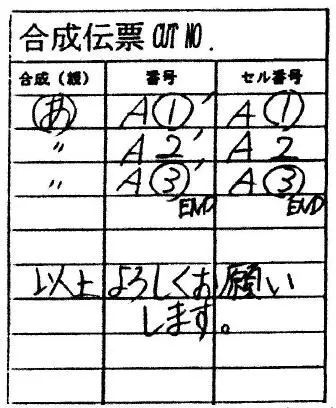 合成伝票 CUT NO.
合成(親) 番号 セル番号
あ A①' A①
〃 A2' A2
〃 A③' A③
END END
以上よろしくお願い
します。